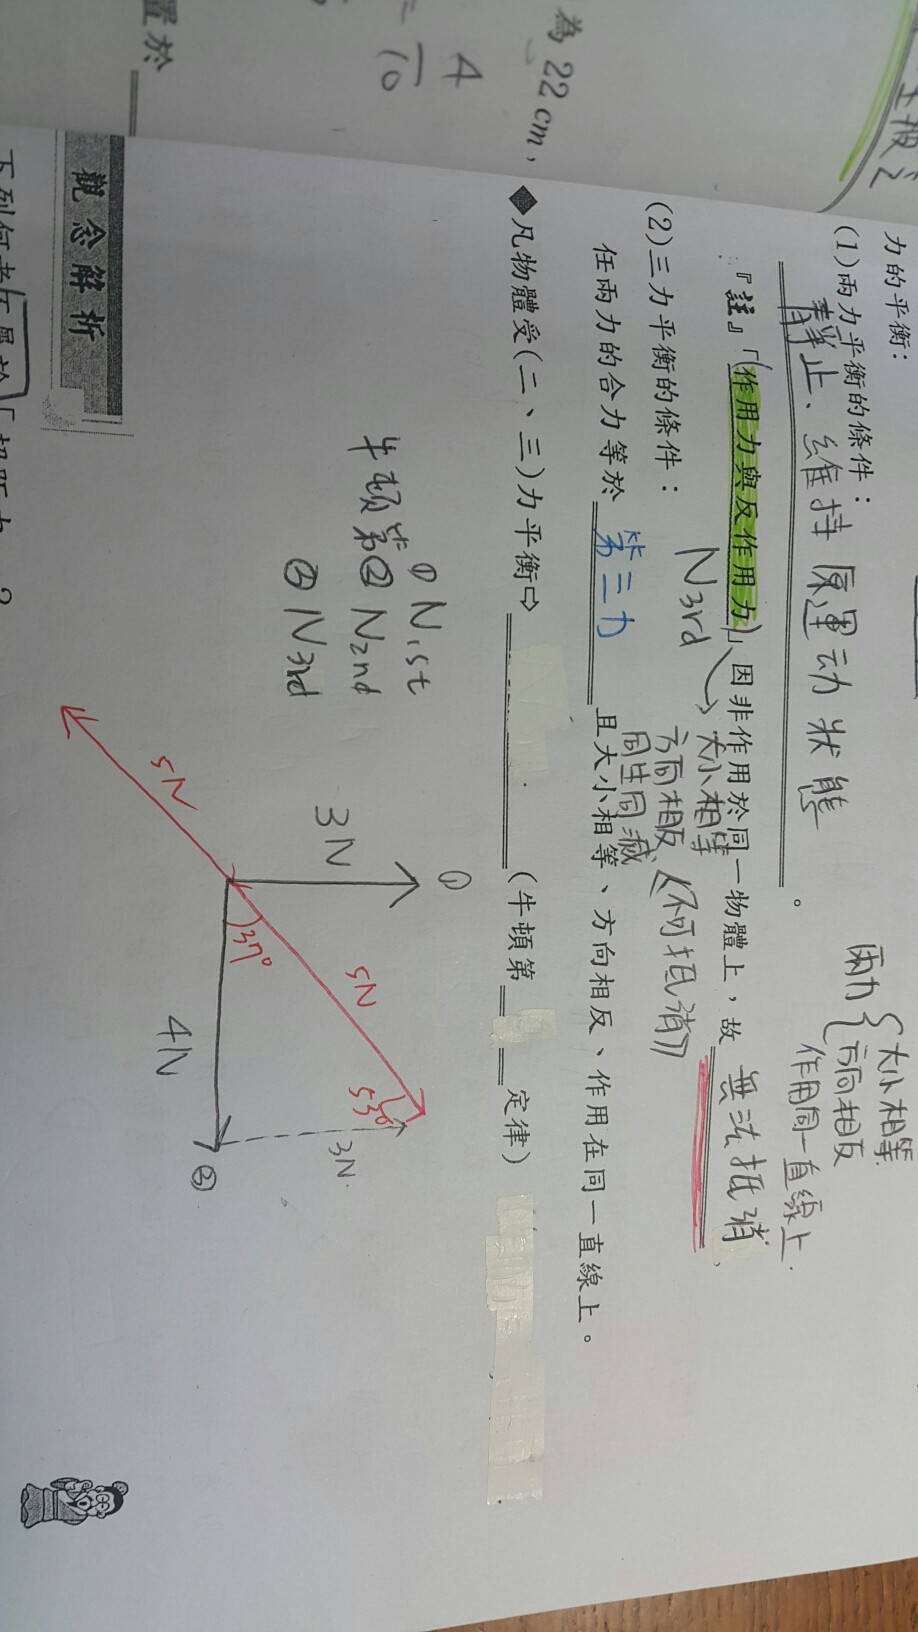 力的平衡:
(1)兩力平衡的條件:
靜止、維持原運动狀態。
兩力{大小相等
方向相反
作用同一直線上.
『註』「(作用力與反作用力)」因非作用於同一物體上,故無法抵消
N3rd
大小相等
方向相反、
同生同滅
《不可抵消》
(2)三力平衡的條件:
任兩力的合力等於第三力且大小相等、方向相反、作用在同一直線上。
◆凡物體受(二、三)力平衡⇨(牛頓第 定律)
牛頓第
① N1st
② N2nd
③ N3rd
①
3N
5N
5N
37°
53°
3N.
4N
②
觀念解析
下列何者不屬於「超距力
?
為22cm,
4
10
置於